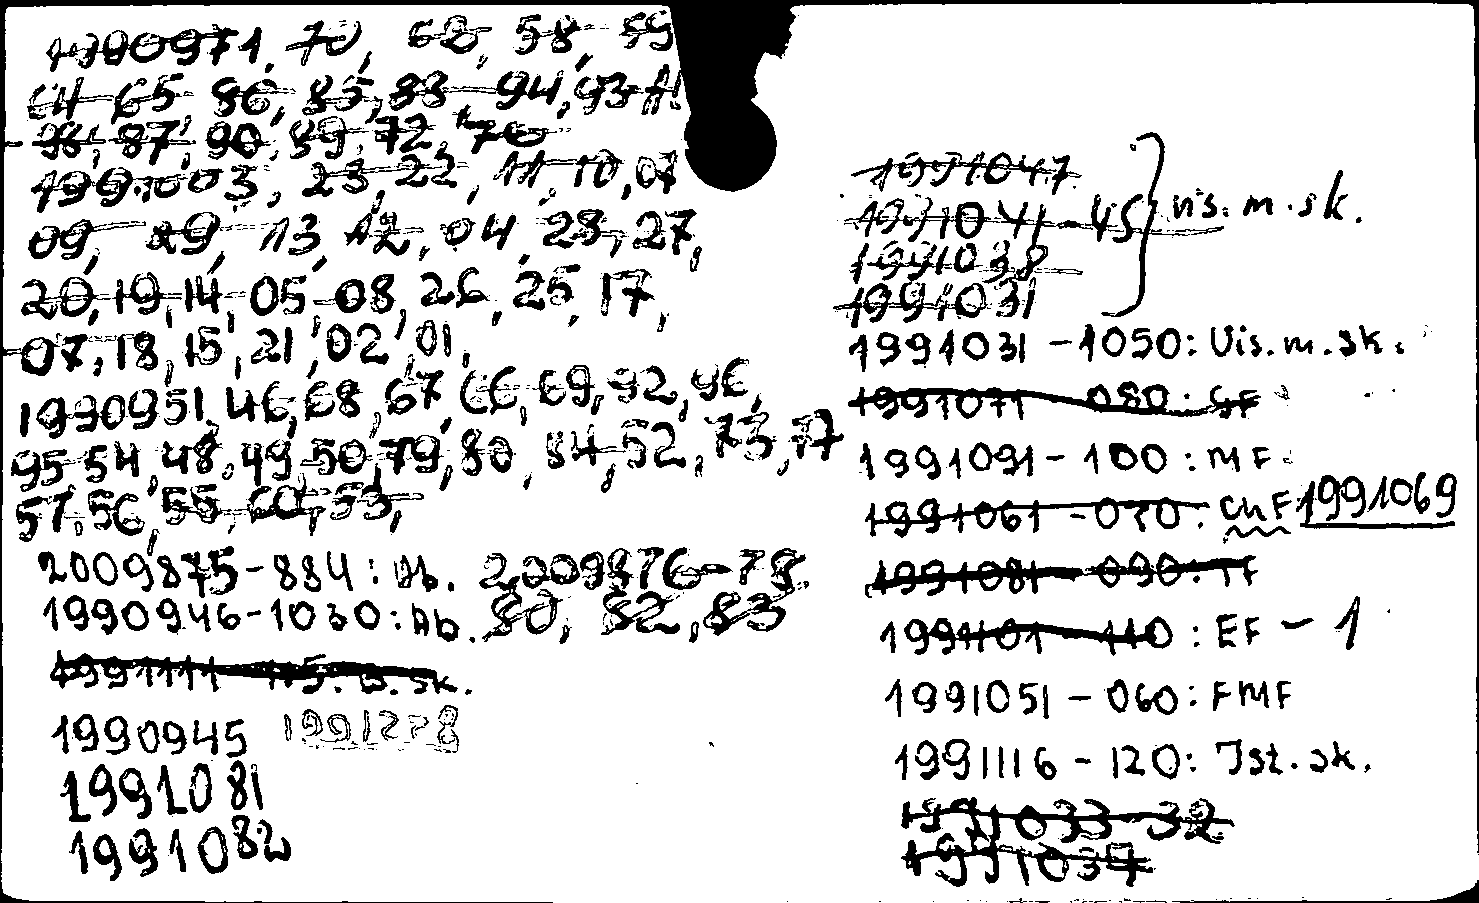 1990971, 70, 62, 58, 59
64 65 86, 85, 83, 94, 93
98, 87, 90, 89, 72, 76
1991003, 23, 22, 11, 10, 07
09, 29, 13 12, 04, 28, 27,
20, 19, 14, 05, 08, 26, 25, 17,
07, 18, 15, 21, 02, 01,
1990951, 46, 68, 67, 66, 69, 92, 96,
95 54, 48, 49, 50, 79, 80, 84, 52, 73, 77
57, 56, 55, 60, 53,
2009875-884: Ab. 2009876-78
1990946-1030: Ab. 80, 82, 83
1991111 - 115: B. sk.
1990945
1991081
1991082
1991047
1991041-45 } vis. m. sk.
1991038
1991031
1991031 - 1050: Vis. m. sk.
1991071 - 080: GF
1991091 - 100: MF
1991061 - 070: ChF 1991069
1991081 - 090: TF
1991101 - 110: EF - 1
1991051 - 060: FMF
1991116 - 120: Ist. sk.
1991033-32
1991037